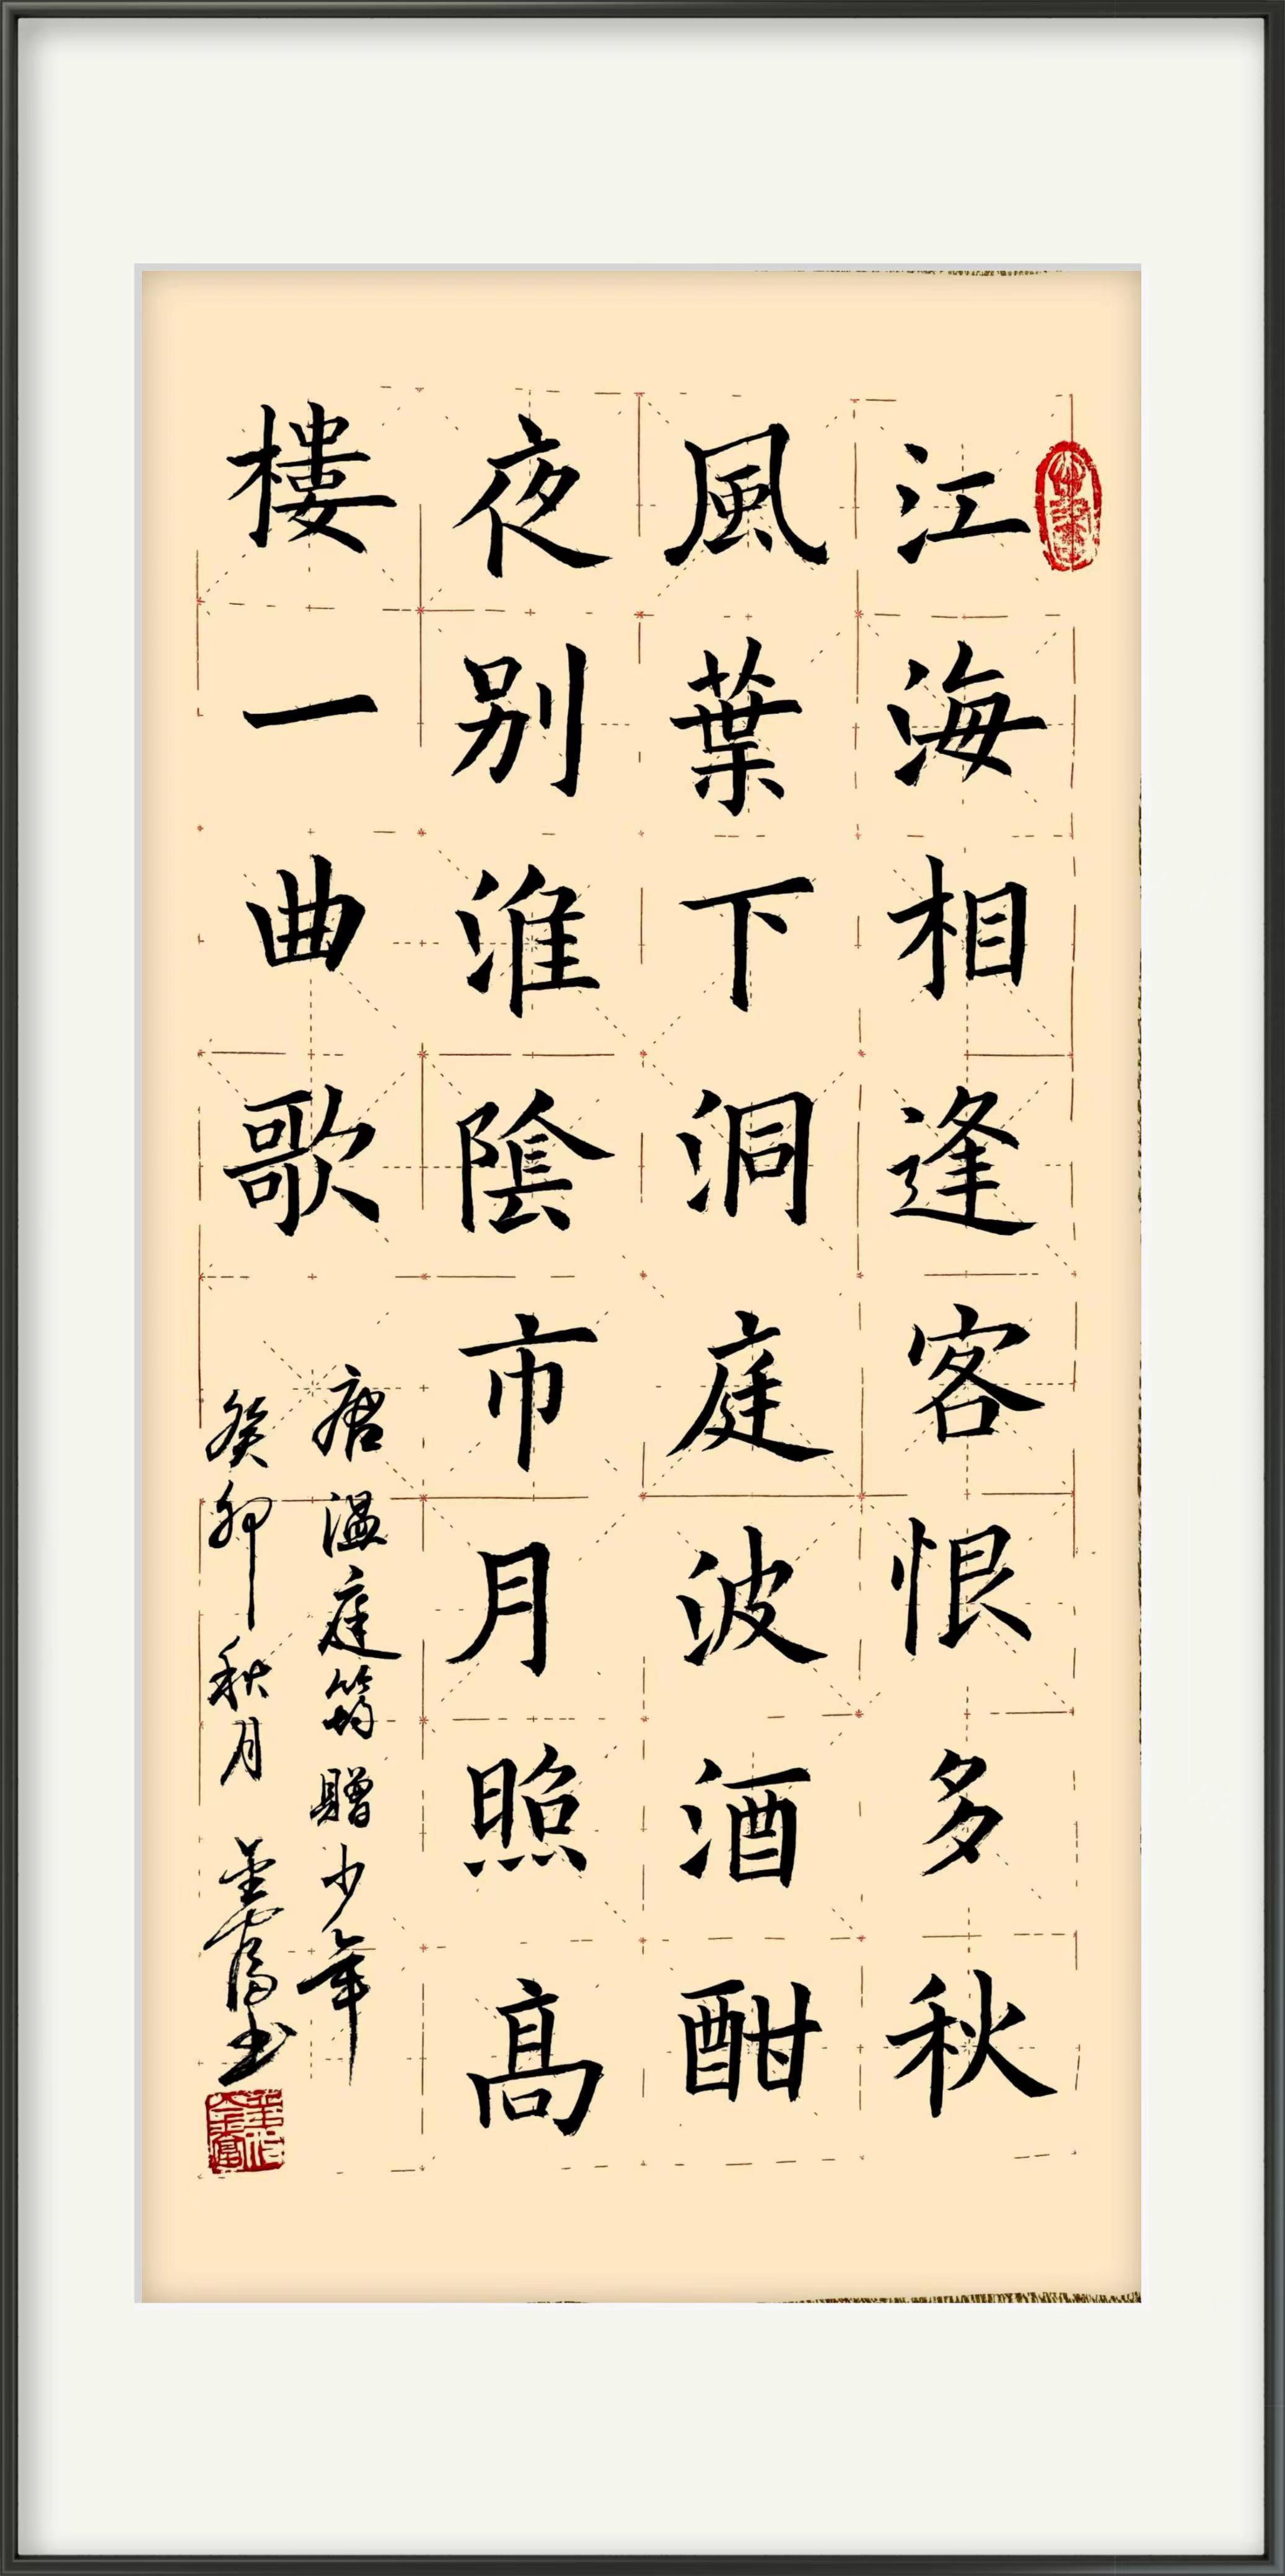 江海相逢客恨多秋
風葉下洞庭波酒酣
夜别淮陰市月照高
樓一曲歌
唐溫庭筠贈少年
癸卯秋月金富书